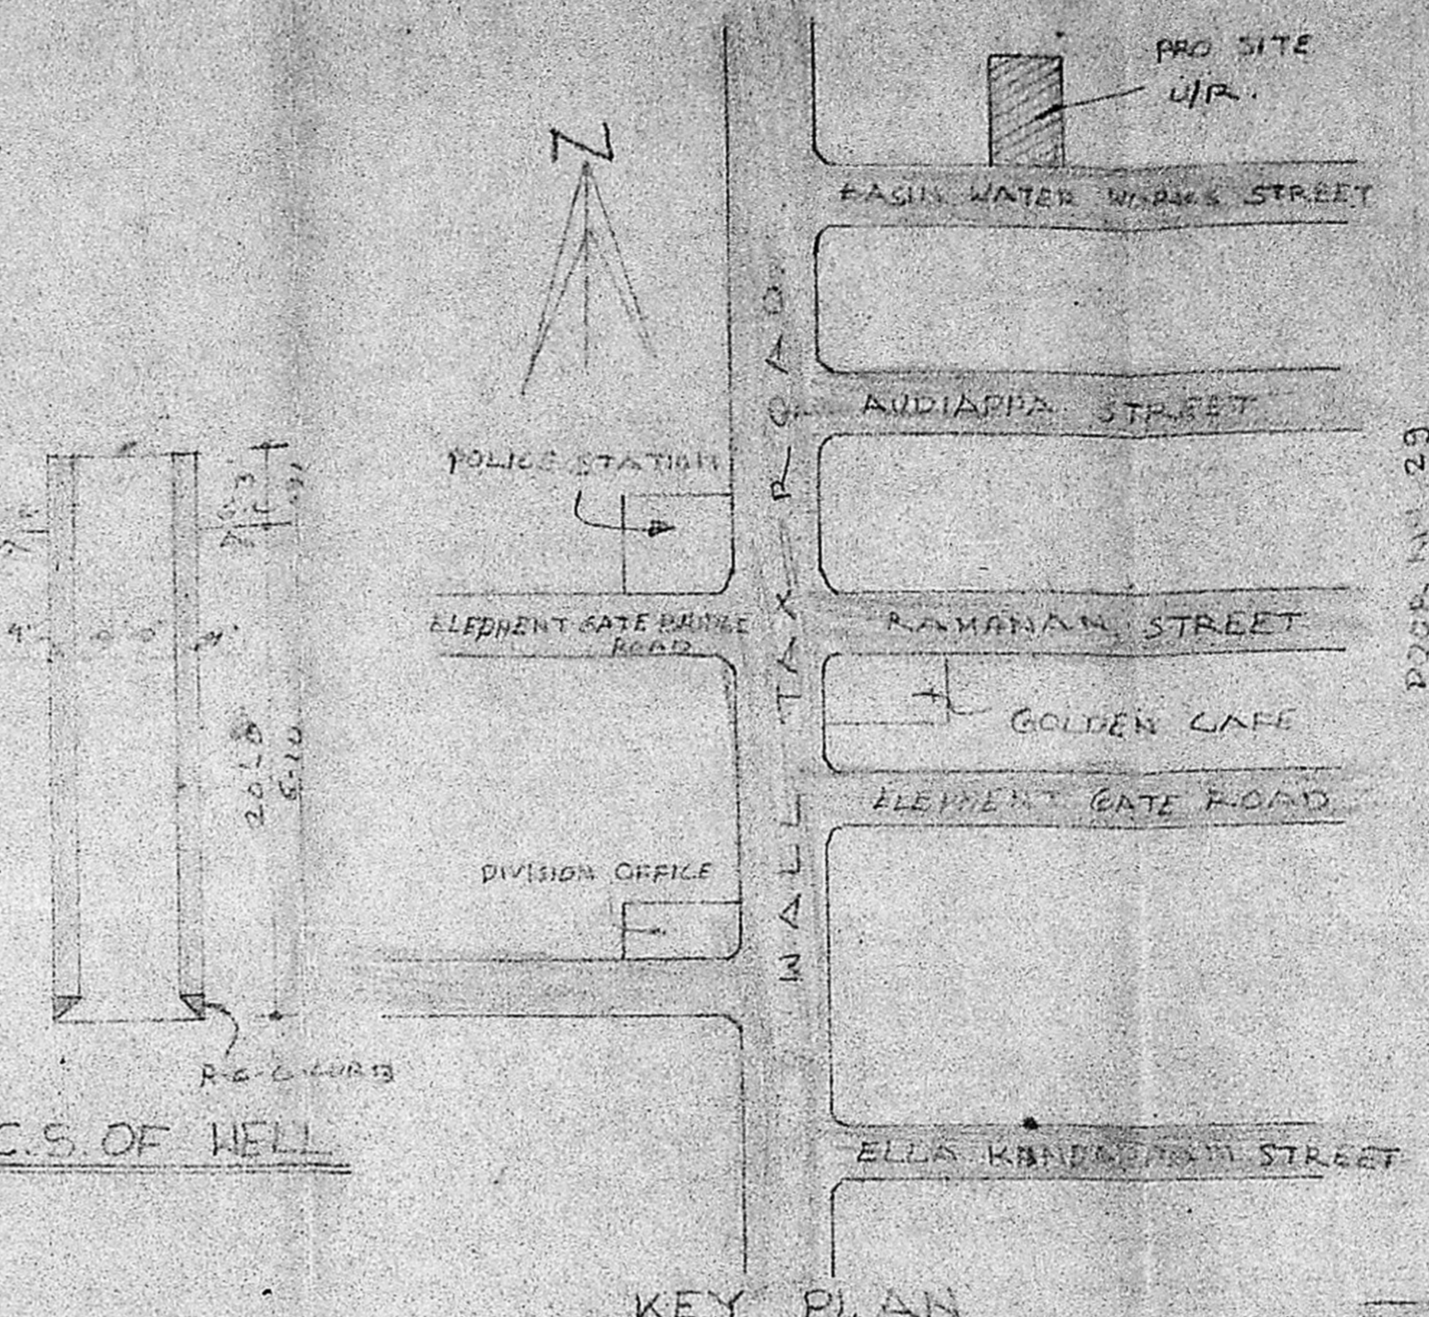 N
PRO SITE
U/R.
BASIN WATER WORKS STREET
AUDIAPPA STREET
POLICE STATION
ELEPHENT GATE BRIDGE
ROAD
RAMANAN STREET
GOLDEN CAFE
ELEPHENT GATE ROAD
DIVISION OFFICE
WALL TAX ROAD
ELLA STREET
KEY PLAN
9"
9"
R.C.C. CURB
C.S. OF WELL
DOOR 29